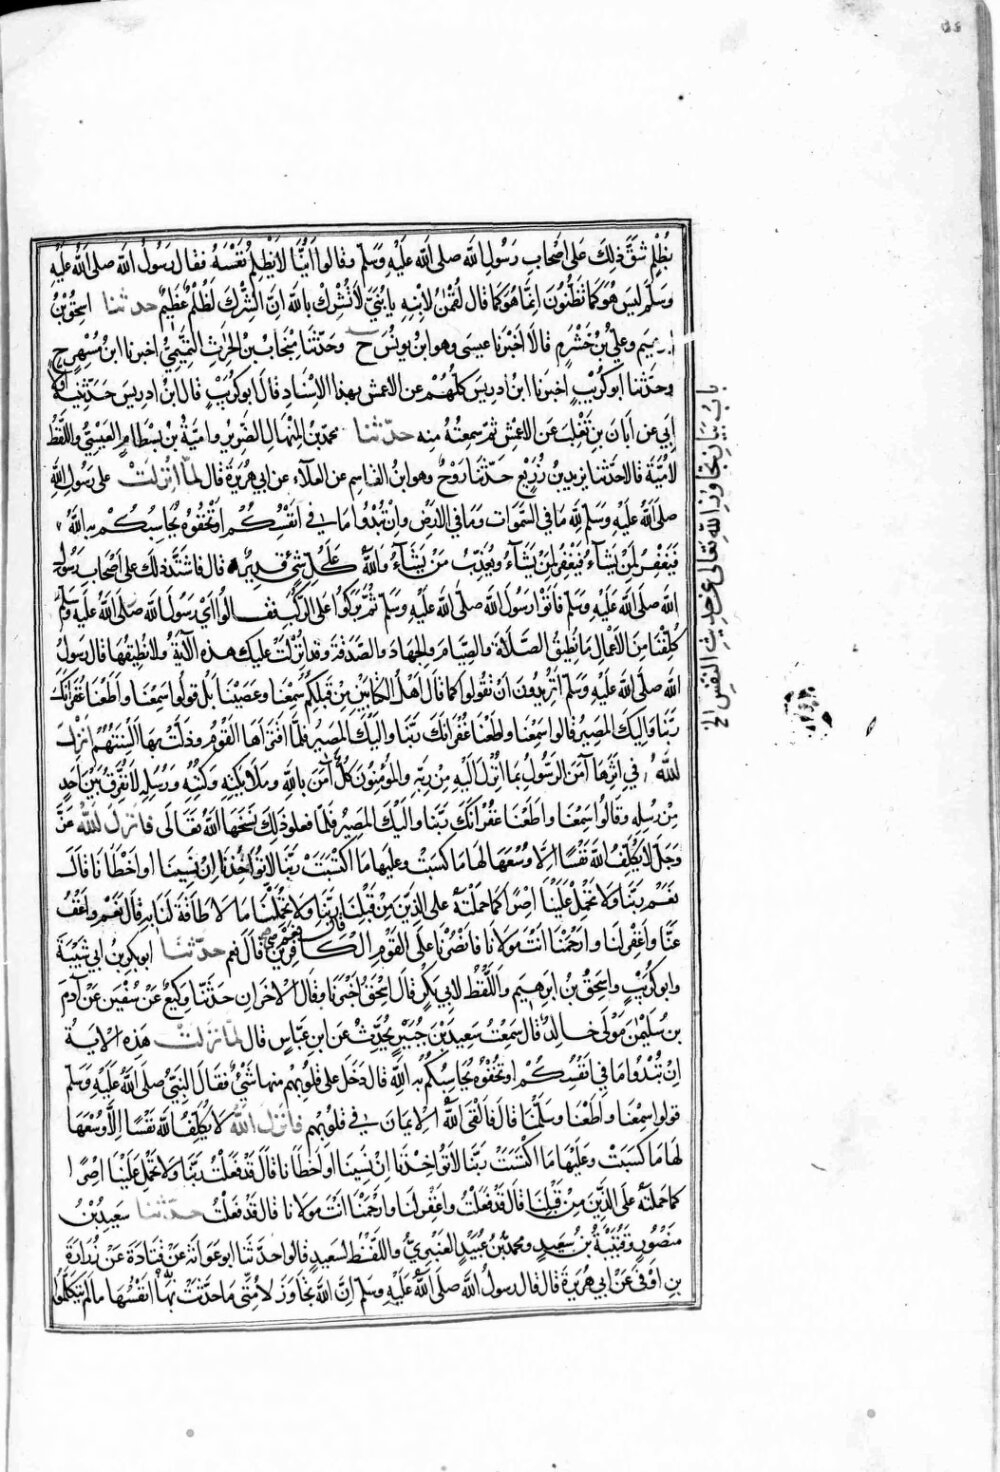 بظلم شق ذلك على أصحاب رسول الله صلى الله عليه وسلم وقالوا أينا لا يظلم نفسه فقال رسول الله صلى الله عليه
وسلم ليس هو كما تظنون انما هو كما قال لقمن لابنه يا بنى لا تشرك بالله ان الشرك لظلم عظيم حدثنا اسحق بن
وعلي بن خشرم قالا اخبرنا عيسى وهو ابن يونس ح وحدثنا منجاب بن الحرث التميمي اخبرنا ابن مسهر ح
وحدثنا ابو كريب اخبرنا ابن ادريس كلهم عن الاعمش بهذا الاسناد قال ابو كريب قال ابن ادريس حدثنيه
ابي عن ابان بن تغلب عن الاعمش ثم سمعته منه حدثنا محمد بن المنهال الضرير وامية بن بسطام العيشي واللفظ
لامية قالا حدثنا يزيد بن زريع حدثنا روح وهو ابن القاسم عن العلاء عن ابي هريرة قال لما انزلت على رسول الله
صلى الله عليه وسلم لله ما في السموات وما في الارض وان تبدوا ما في انفسكم او تخفوه يحاسبكم به الله
فيغفر لمن يشاء ويعذب من يشاء والله على كل شئ قدير قال فاشتد ذلك على اصحاب رسول
الله صلى الله عليه وسلم فاتوا رسول الله صلى الله عليه وسلم ثم بركوا على الركب فقالوا اي رسول الله صلى الله عليه وسلم
كلفنا من الاعمال ما نطيق الصلاة والصيام والجهاد والصدقة وقد انزلت عليك هذه الآية ولا نطيقها قال رسول
الله صلى الله عليه وسلم اتريدون ان تقولوا كما قال اهل الكتابين من قبلكم سمعنا وعصينا بل قولوا سمعنا واطعنا غفرانك
ربنا واليك المصير قالوا سمعنا واطعنا غفرانك ربنا واليك المصير فلما اقترأها القوم وذلت بها السنتهم انزل
الله في اثرها آمن الرسول بما انزل اليه من ربه والمؤمنون كل آمن بالله وملائكته وكتبه ورسله لا نفرق بين احد
من رسله وقالوا سمعنا واطعنا غفرانك ربنا واليك المصير فلما فعلوا ذلك نسخها الله تعالى فانزل الله عز
وجل لا يكلف الله نفسا الا وسعها لها ما كسبت وعليها ما اكتسبت ربنا لا تؤاخذنا ان نسينا او اخطأنا قال
نعم ربنا ولا تحمل علينا اصرا كما حملته على الذين من قبلنا ربنا ولا تحملنا ما لا طاقة لنا به قال نعم واعف
عنا واغفر لنا وارحمنا انت مولانا فانصرنا على القوم الكافرين قال نعم حدثنا ابو بكر بن ابي شيبة
وابو كريب واسحق بن ابرهيم واللفظ لابي بكر قال اسحق اخبرنا وقال الاخران حدثنا وكيع عن سفين عن آدم
بن سليمن مولى خالد قال سمعت سعيد بن جبير يحدث عن ابن عباس قال لما نزلت هذه الاية
ان تبدوا ما في انفسكم او تخفوه يحاسبكم به الله قال دخل على قلوبهم منها شئ فقال النبي صلى الله عليه وسلم
قولوا سمعنا واطعنا وسلمنا قال فالقى الله الايمان في قلوبهم فانزل الله لا يكلف الله نفسا الا وسعها
لها ما كسبت وعليها ما اكتسبت ربنا لا تؤاخذنا ان نسينا او اخطأنا قال قد فعلت ربنا ولا تحمل علينا اصرا
كما حملته على الذين من قبلنا قال قد فعلت واغفر لنا وارحمنا انت مولانا قال قد فعلت حدثنا سعيد بن
منصور وقتيبة بن سعيد ومحمد بن عبيد الغبري واللفظ لسعيد قالوا حدثنا ابو عوانة عن قتادة عن زرارة
بن اوفى عن ابي هريرة قال قال رسول الله صلى الله عليه وسلم ان الله تجاوز لامتي ما حدثت به انفسها ما لم يتكلموا
باب بيان تجاوز الله تعالى عن حديث النفس الخ